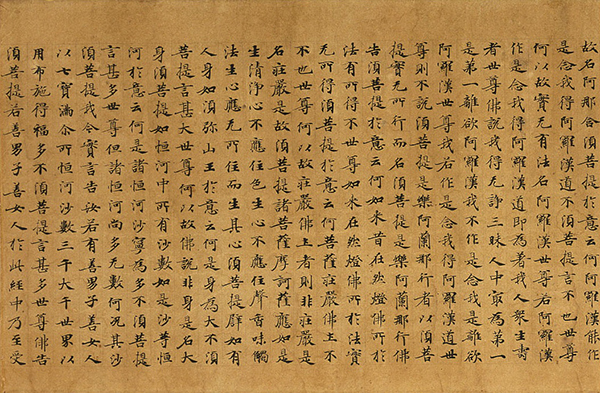 故名阿那含須菩提於意云何阿羅漢能作
是念我得阿羅漢道不須菩提言不也世尊
何以故實无有法名阿羅漢世尊若阿羅漢
作是念我得阿羅漢道即為著我人衆生壽
者世尊佛說我得无諍三昧人中最為第一
是第一離欲阿羅漢我不作是念我是離欲
阿羅漢世尊我若作是念我得阿羅漢道世
尊則不說須菩提是樂阿蘭那行者以須菩
提實无所行而名須菩提是樂阿蘭那行佛
告須菩提於意云何如来昔在然燈佛所於
法有所得不世尊如来在然燈佛所於法實
无所得須菩提於意云何菩薩莊嚴佛土不
不也世尊何以故莊嚴佛土者則非莊嚴是
名莊嚴是故須菩提諸菩薩摩訶薩應如是
生清淨心不應住色生心不應住聲香味觸
法生心應无所住而生其心須菩提譬如有
人身如須弥山王於意云何是身為大不須
菩提言甚大世尊何以故佛說非身是名大
身須菩提如恒河中所有沙數如是沙等恒
河於意云何是諸恒河沙寧為多不須菩提
言甚多世尊但諸恒河尚多无數何况其沙
須菩提我今實言告汝若有善男子善女人
以七寶滿尒所恒河沙數三千大千世界以
用布施得福多不須菩提言甚多世尊佛告
須菩提若善男子善女人於此經中乃至受